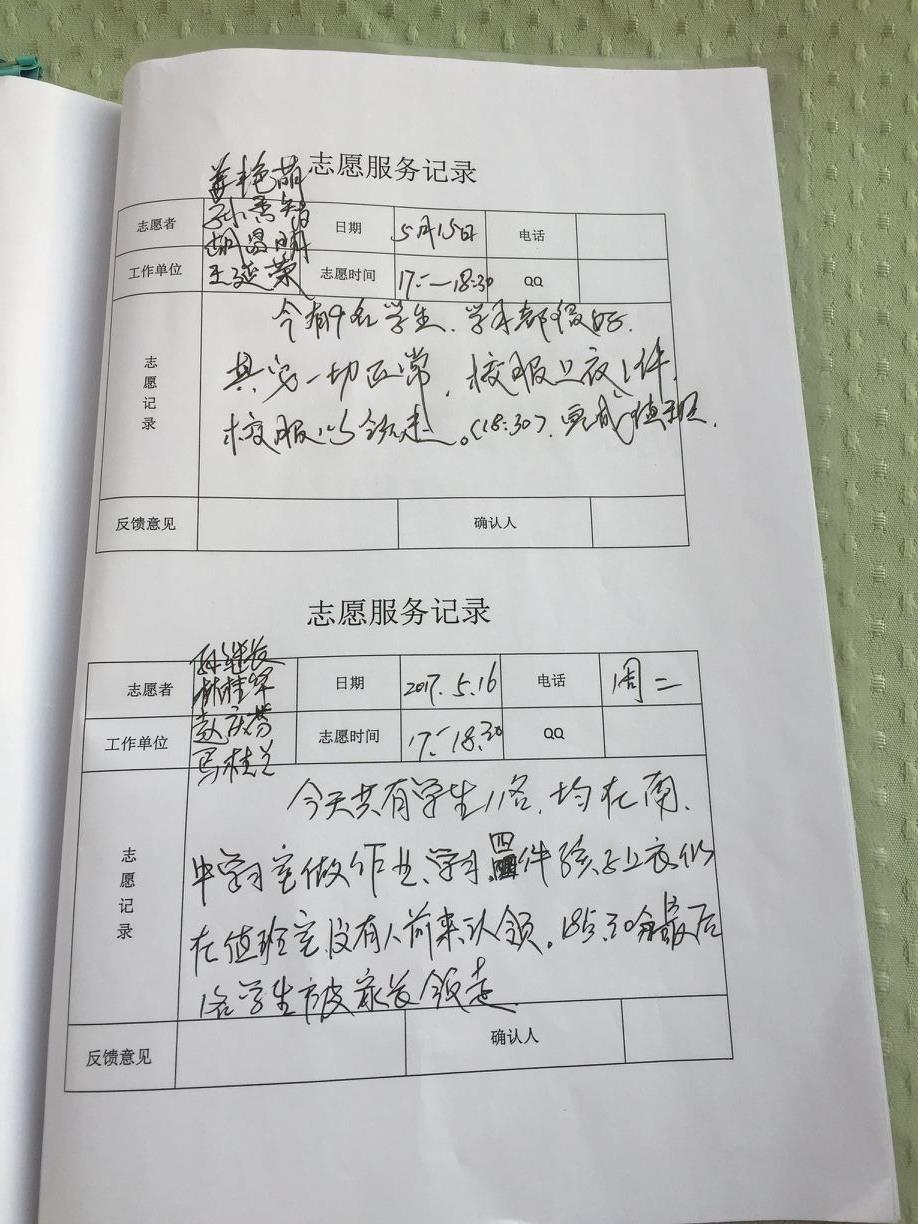 志愿服务记录
志愿者 姜艳萌 日期 5月15日 电话
孙秀智
胡昌明
工作单位 王延荣 志愿时间 17:—18:30 QQ
志愿记录
今有9名学生、学习都很好.
其它一切正常,校服上衣1件,
校服以领走。(18:30).完成值班.
反馈意见 确认人
志愿服务记录
志愿者 孙继长 日期 2017.5.16 电话 周二
林桂军
工作单位 赵庆芬 志愿时间 17:-18:30 QQ
马桂兰
志愿记录
今天共有学生11名,均在南.
中学习室做作业、学习.四件孩子上衣仍
在值班室,没有人前来认领。18点30分最后
1名学生被家长领走.
反馈意见 确认人